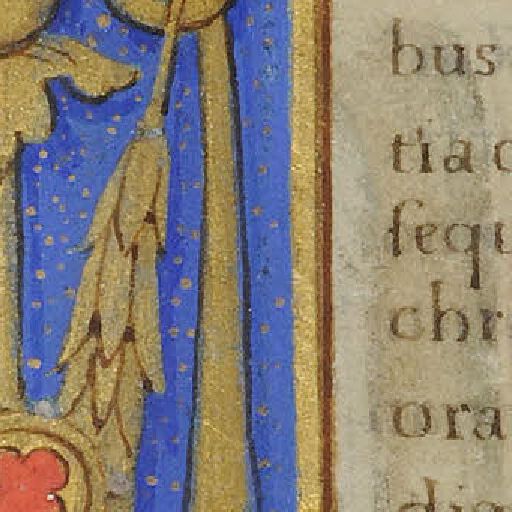 bus
tia
ſequ
chr
ora